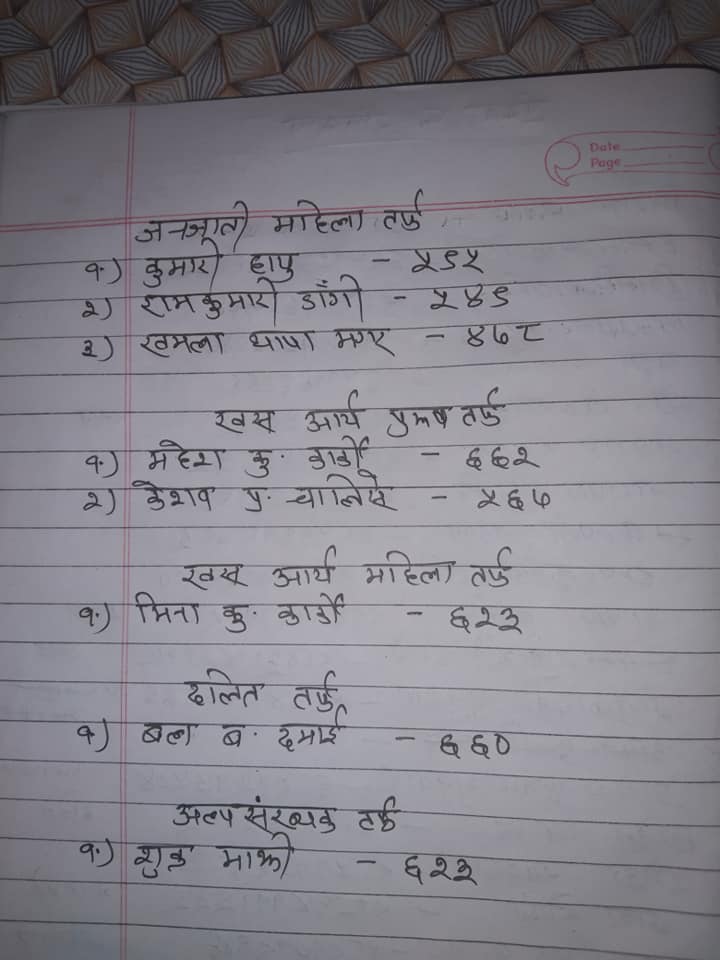 Date
Page
जनजाती महिला तर्फ
१.) कुमारी हापु - ५९५
२) रामकुमारी डाँगी - ५४९
३) खमला थापा मगर - ४७८
खस आर्य पुरुष तर्फ
१.) महेश कु. कार्की - ६६२
२) केशव प्र. चालिसे - ५६७
खस आर्य महिला तर्फ
१.) मिना कु. कार्की - ६२३
दलित तर्फ
१) बल ब. दमाई - ६६०
अल्पसंख्यक तर्फ
१.) शुक्र माझी - ६२३